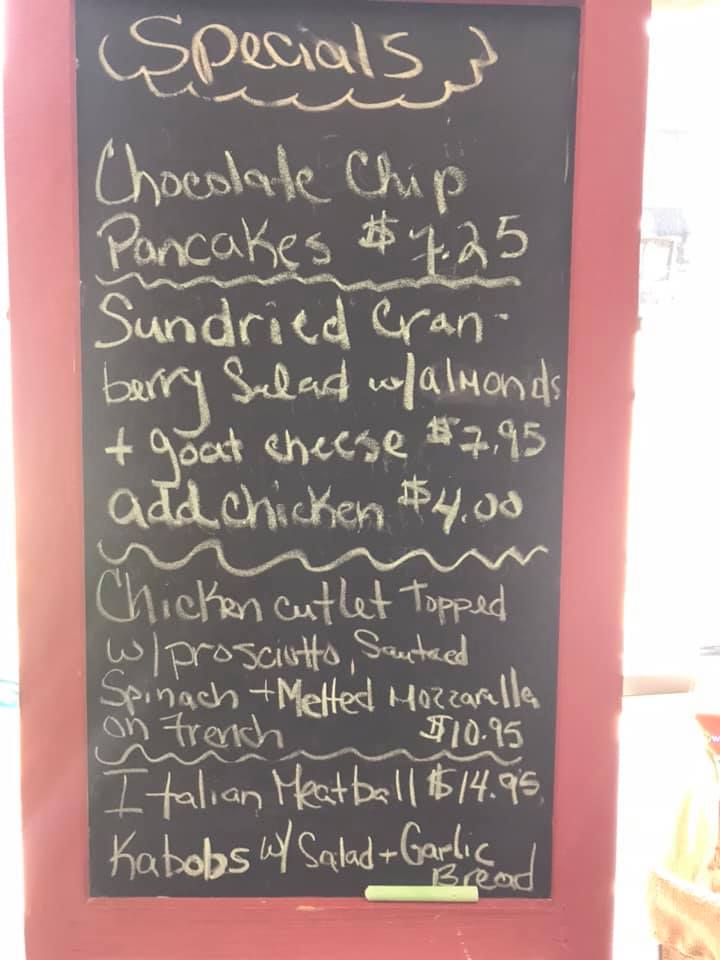 Specials
Chocolate Chip
Pancakes $7.25
Sundried Cran-
berry Salad w/almonds
+ goat cheese $7.95
add chicken $4.00
Chicken cutlet topped
w/prosciutto, Sauteed
Spinach + Melted Mozzarella
on French $10.95
Italian Meatball $14.95
Kabobs w/ Salad + Garlic
Bread